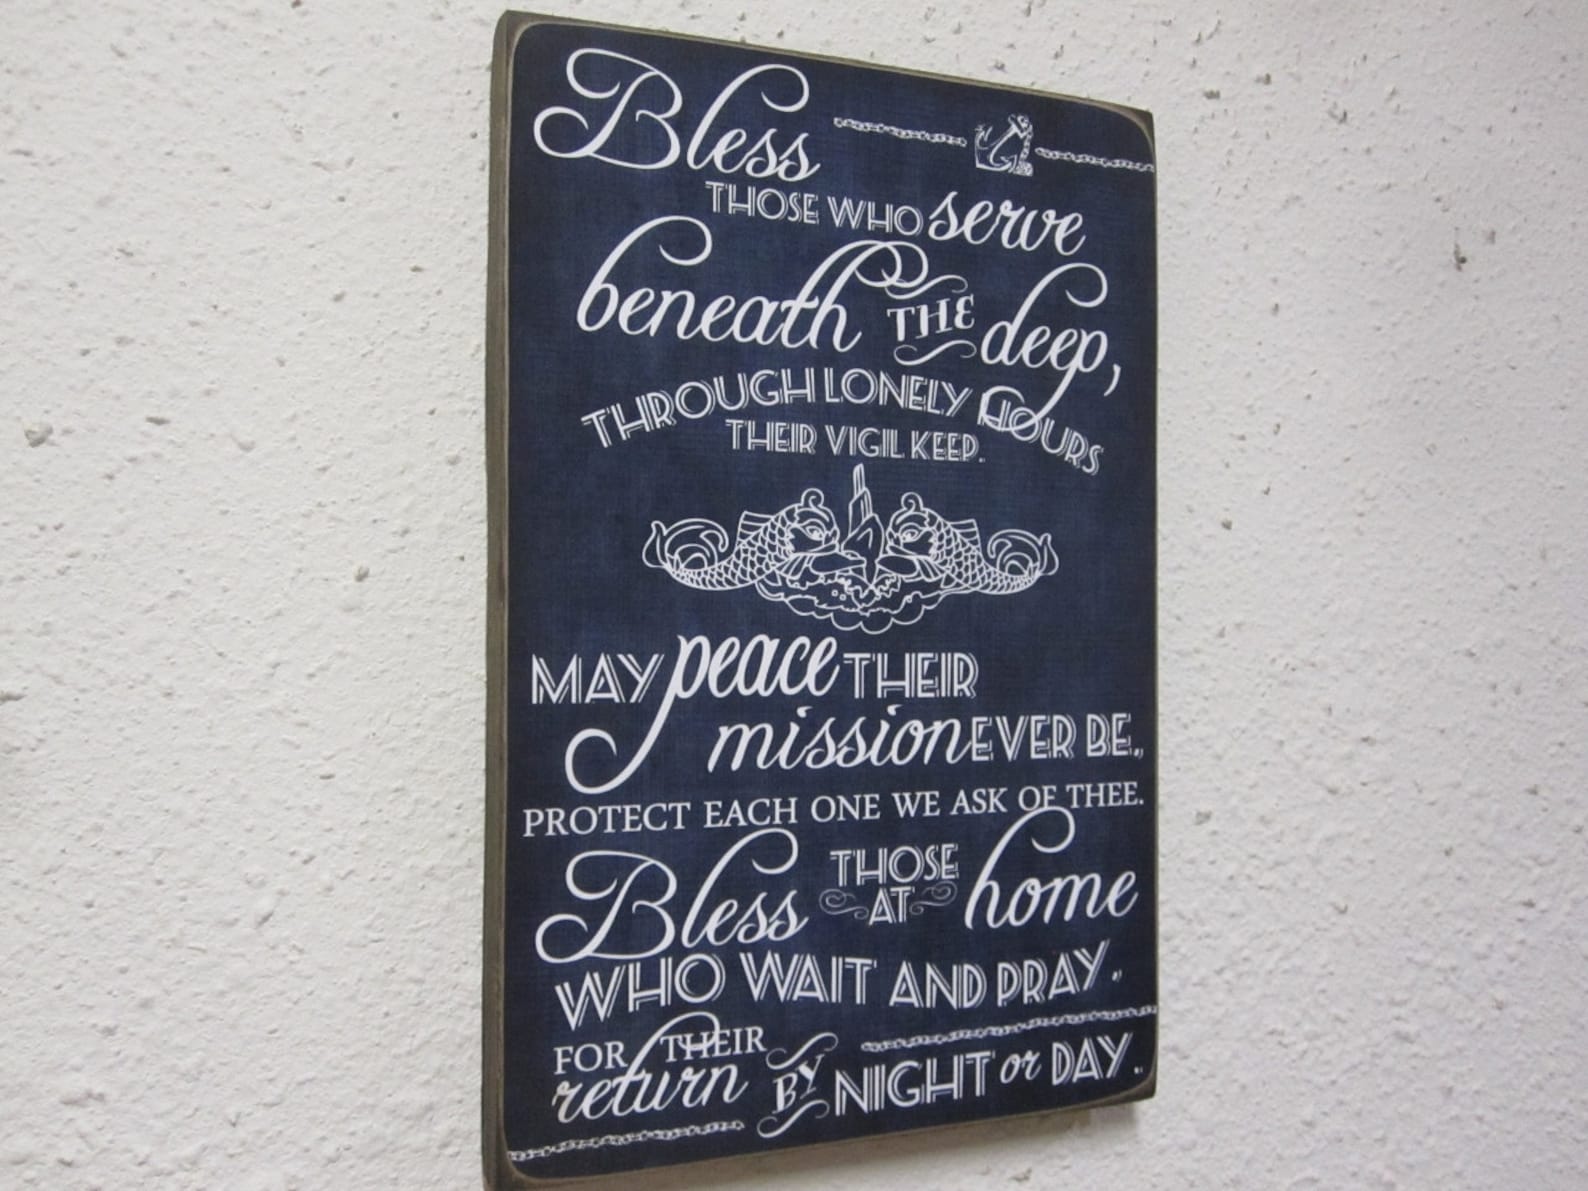 Bless
THOSE WHO serve
beneath THE deep,
THROUGH LONELY HOURS
THEIR VIGIL KEEP.
MAY peace THEIR
mission EVER BE,
PROTECT EACH ONE WE ASK OF THEE.
Bless THOSE AT home
WHO WAIT AND PRAY,
FOR THEIR
return BY NIGHT or DAY.